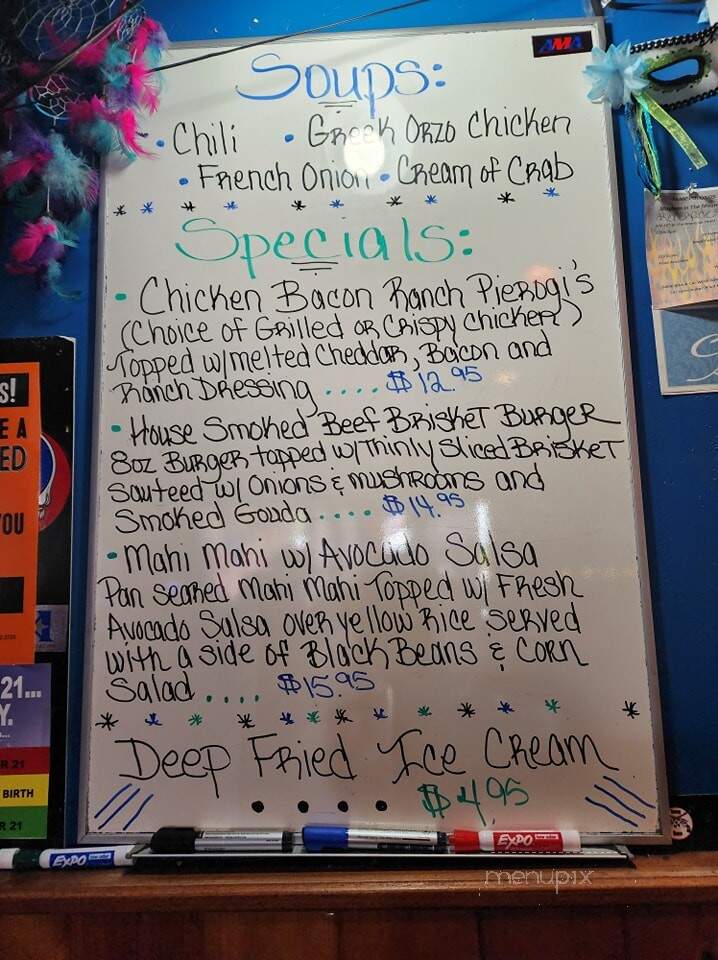 AMA
Soups:
• Chili • Greek Orzo Chicken
• French Onion • Cream of Crab
Specials:
• Chicken Bacon Ranch Pierogi's
(Choice of Grilled or Crispy Chicken)
Topped w/ melted Cheddar, Bacon and
Ranch Dressing .... $12.95
• House Smoked Beef Brisket Burger
8oz Burger topped w/ Thinly Sliced Brisket
Sauteed w/ Onions & mushrooms and
Smoked Gouda .... $14.95
• Mahi Mahi w/ Avocado Salsa
Pan seared Mahi Mahi Topped w/ Fresh
Avocado Salsa over yellow Rice served
with a side of Black Beans & Corn
Salad .... $15.95
Deep Fried Ice Cream
.... $4.95
S!
E A
ED
YOU
21...
Y.
R 21
BIRTH
R 21
EXPO
EXPO
menupix